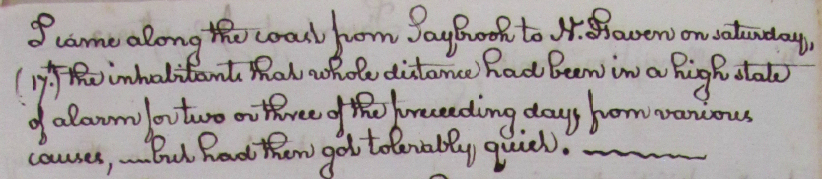 I came along the coast from Saybrook to N. Haven on saturday,
(17th) the inhabitants that whole distance had been in a high state
of alarm for two or three of the preceeding days from various
causes, — but had then got tolerably quiet. ———